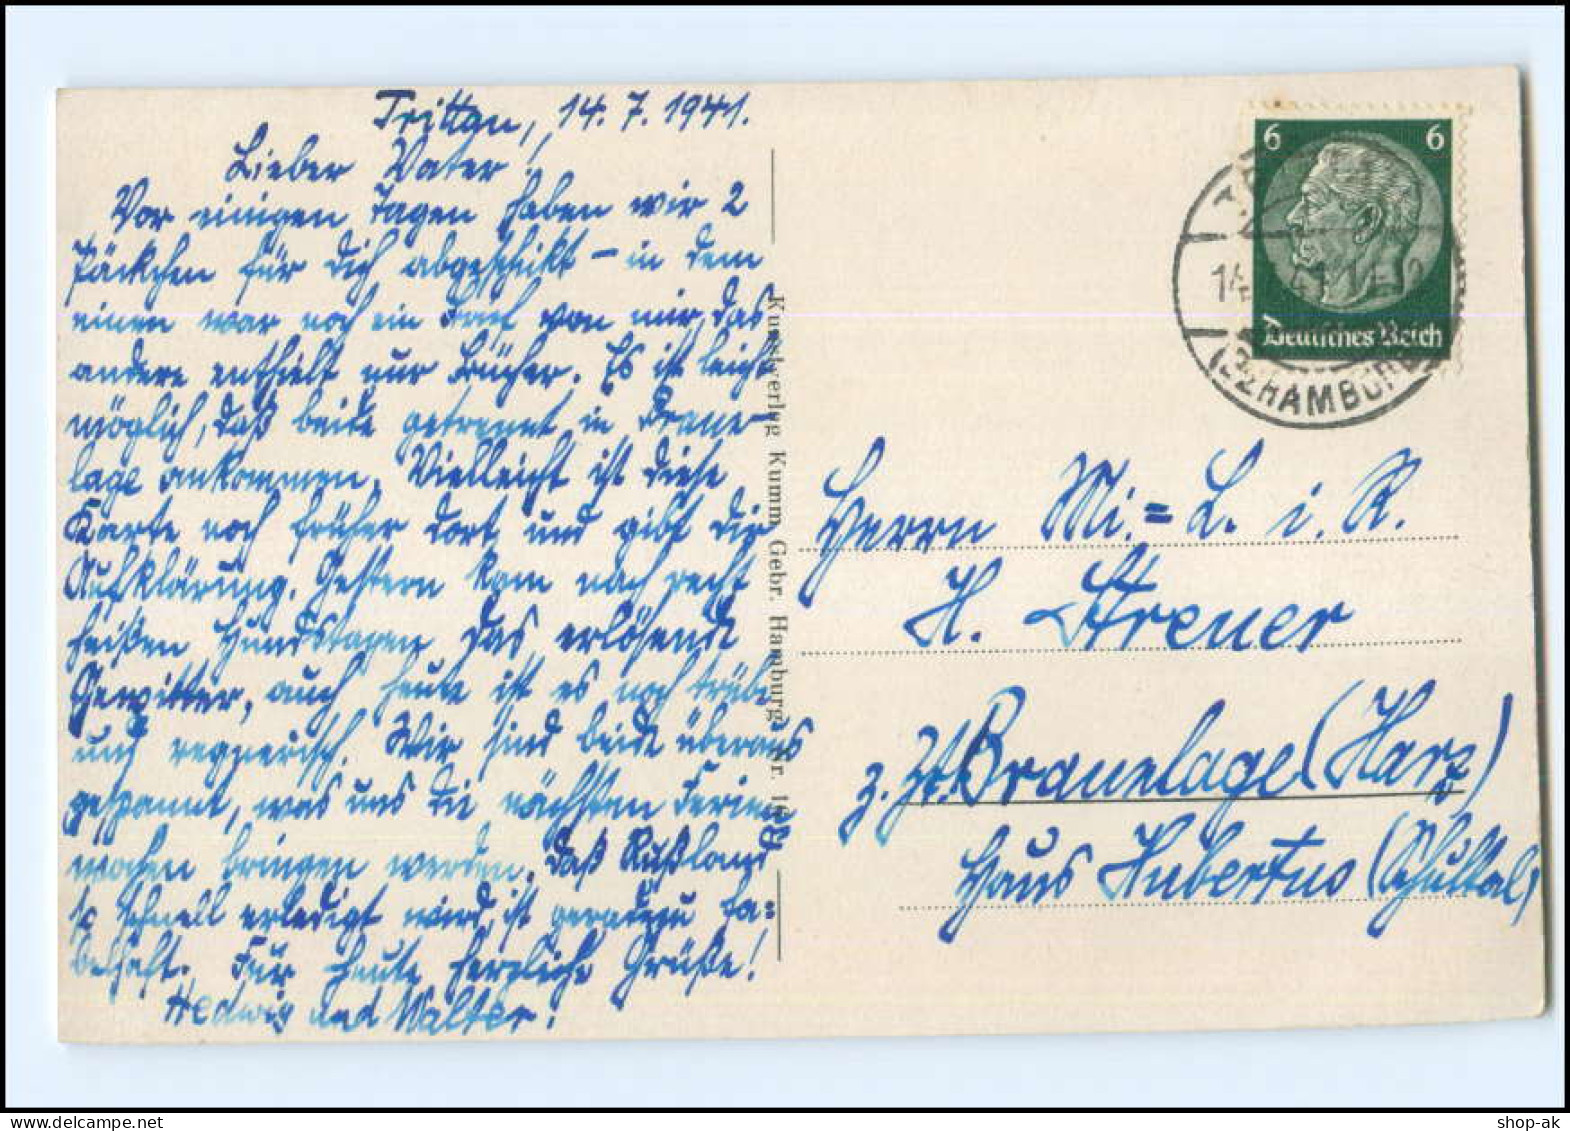 Trittau, 14. 7. 1941.
Lieber Vater!
Vor einigen Tagen haben wir 2
Päckchen für Dich abgeschickt – in dem
einen war noch ein Brief von mir, das
andere enthielt nur Bücher. Es ist leicht
möglich, daß beide getrennt in Braun-
lage ankommen. Vielleicht ist diese
Karte noch früher dort und gibt Dir
Aufklärung. Gestern kam nach recht
heißen Hundstagen das erlösende
Gewitter, auch heute ist es noch trübe
und regnerisch. Wir sind beide überaus
gespannt, was uns die nächsten Ferien
wochen bringen werden. Daß Rußland
so schnell erledigt wird, ist geradezu fa-
belhaft. Für heute herzliche Grüße!
Hedwig und Walter.
Kunstverlag Kumm Gebr. Hamburg Nr.
6 6
Deutsches Reich
14. 41.
HAMBURG
Herrn Mi.=L. i. R.
H. Streuer
z. Zt. Braunlage (Harz)
Haus Hubertus (Schultal)
shop-ak